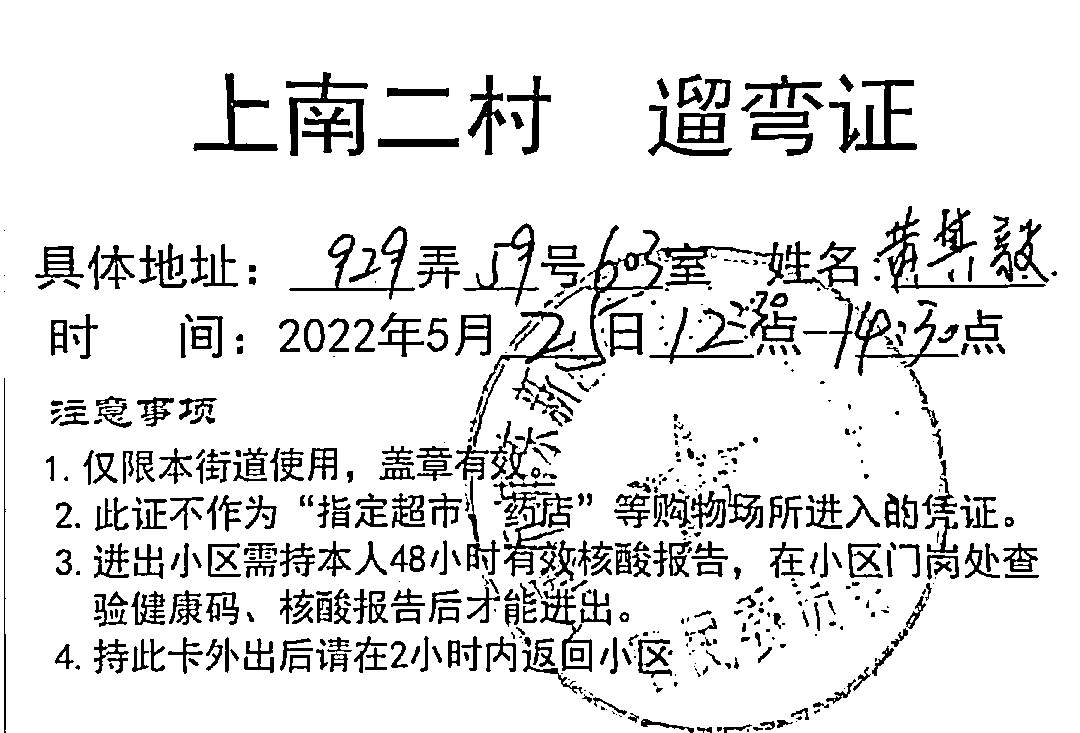 上南二村 遛弯证
具体地址：929弄59号603室 姓名：黄其毅
时 间：2022年5月25日12:30点—14:30点
注意事项
1. 仅限本街道使用，盖章有效。
2. 此证不作为“指定超市、药店”等购物场所进入的凭证。
3. 进出小区需持本人48小时有效核酸报告，在小区门岗处查
验健康码、核酸报告后才能进出。
4. 持此卡外出后请在2小时内返回小区